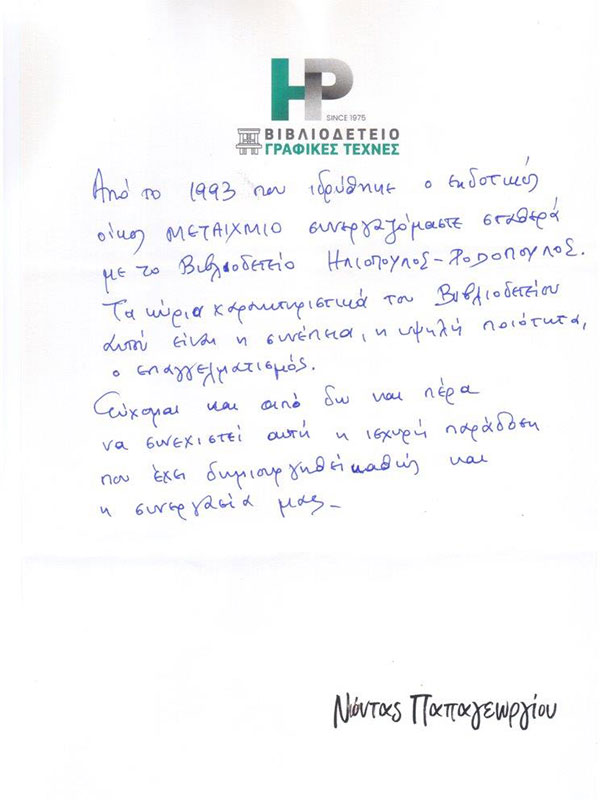 HP
SINCE 1975
ΒΙΒΛΙΟΔΕΤΕΙΟ
ΓΡΑΦΙΚΕΣ ΤΕΧΝΕΣ
Από το 1993 που ιδρύθηκε ο εκδοτικός
οίκος ΜΕΤΑΙΧΜΙΟ συνεργαζόμαστε σταθερά
με το Βιβλιοδετείο ΗΛΙΟΠΟΥΛΟΣ-ΡΟΔΟΠΟΥΛΟΣ.
Τα κύρια χαρακτηριστικά του Βιβλιοδετείου
αυτού είναι η συνέπεια, η υψηλή ποιότητα,
ο επαγγελματισμός.
Εύχομαι και από δω και πέρα
να συνεχιστεί αυτή η ισχυρή παράδοση
που έχει δημιουργηθεί καθώς και
η συνεργασία μας_
Νώντας Παπαγεωργίου